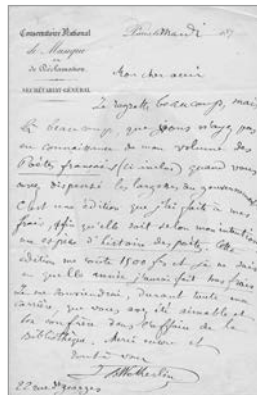 Conservatoire National
de Musique
et
de Déclamation.
SECRÉTARIAT GÉNÉRAL
Paris, Mardi 187
Mon cher ami
Je regrette beaucoup, mais
là beaucoup, que vous n'ayez pas
eu connaissance de mon volume des
Poètes français (ci inclus) quand vous
avez dispensé les largesses du gouvernement
C'est une édition que j'ai faite à mes
frais, afin qu'elle soit selon mon intention
une espèce d'histoire des poètes. Cette
édition me coûte 1500 fr et je ne sais
en quelle année j'aurai fait mes frais
Je me souviendrai, durant toute ma
carrière, que vous avez été aimable et
bon confrère dans l'affaire de la
Bibliothèque. Merci encore et
tout à vous
J B Wekerlin
22 rue St georges